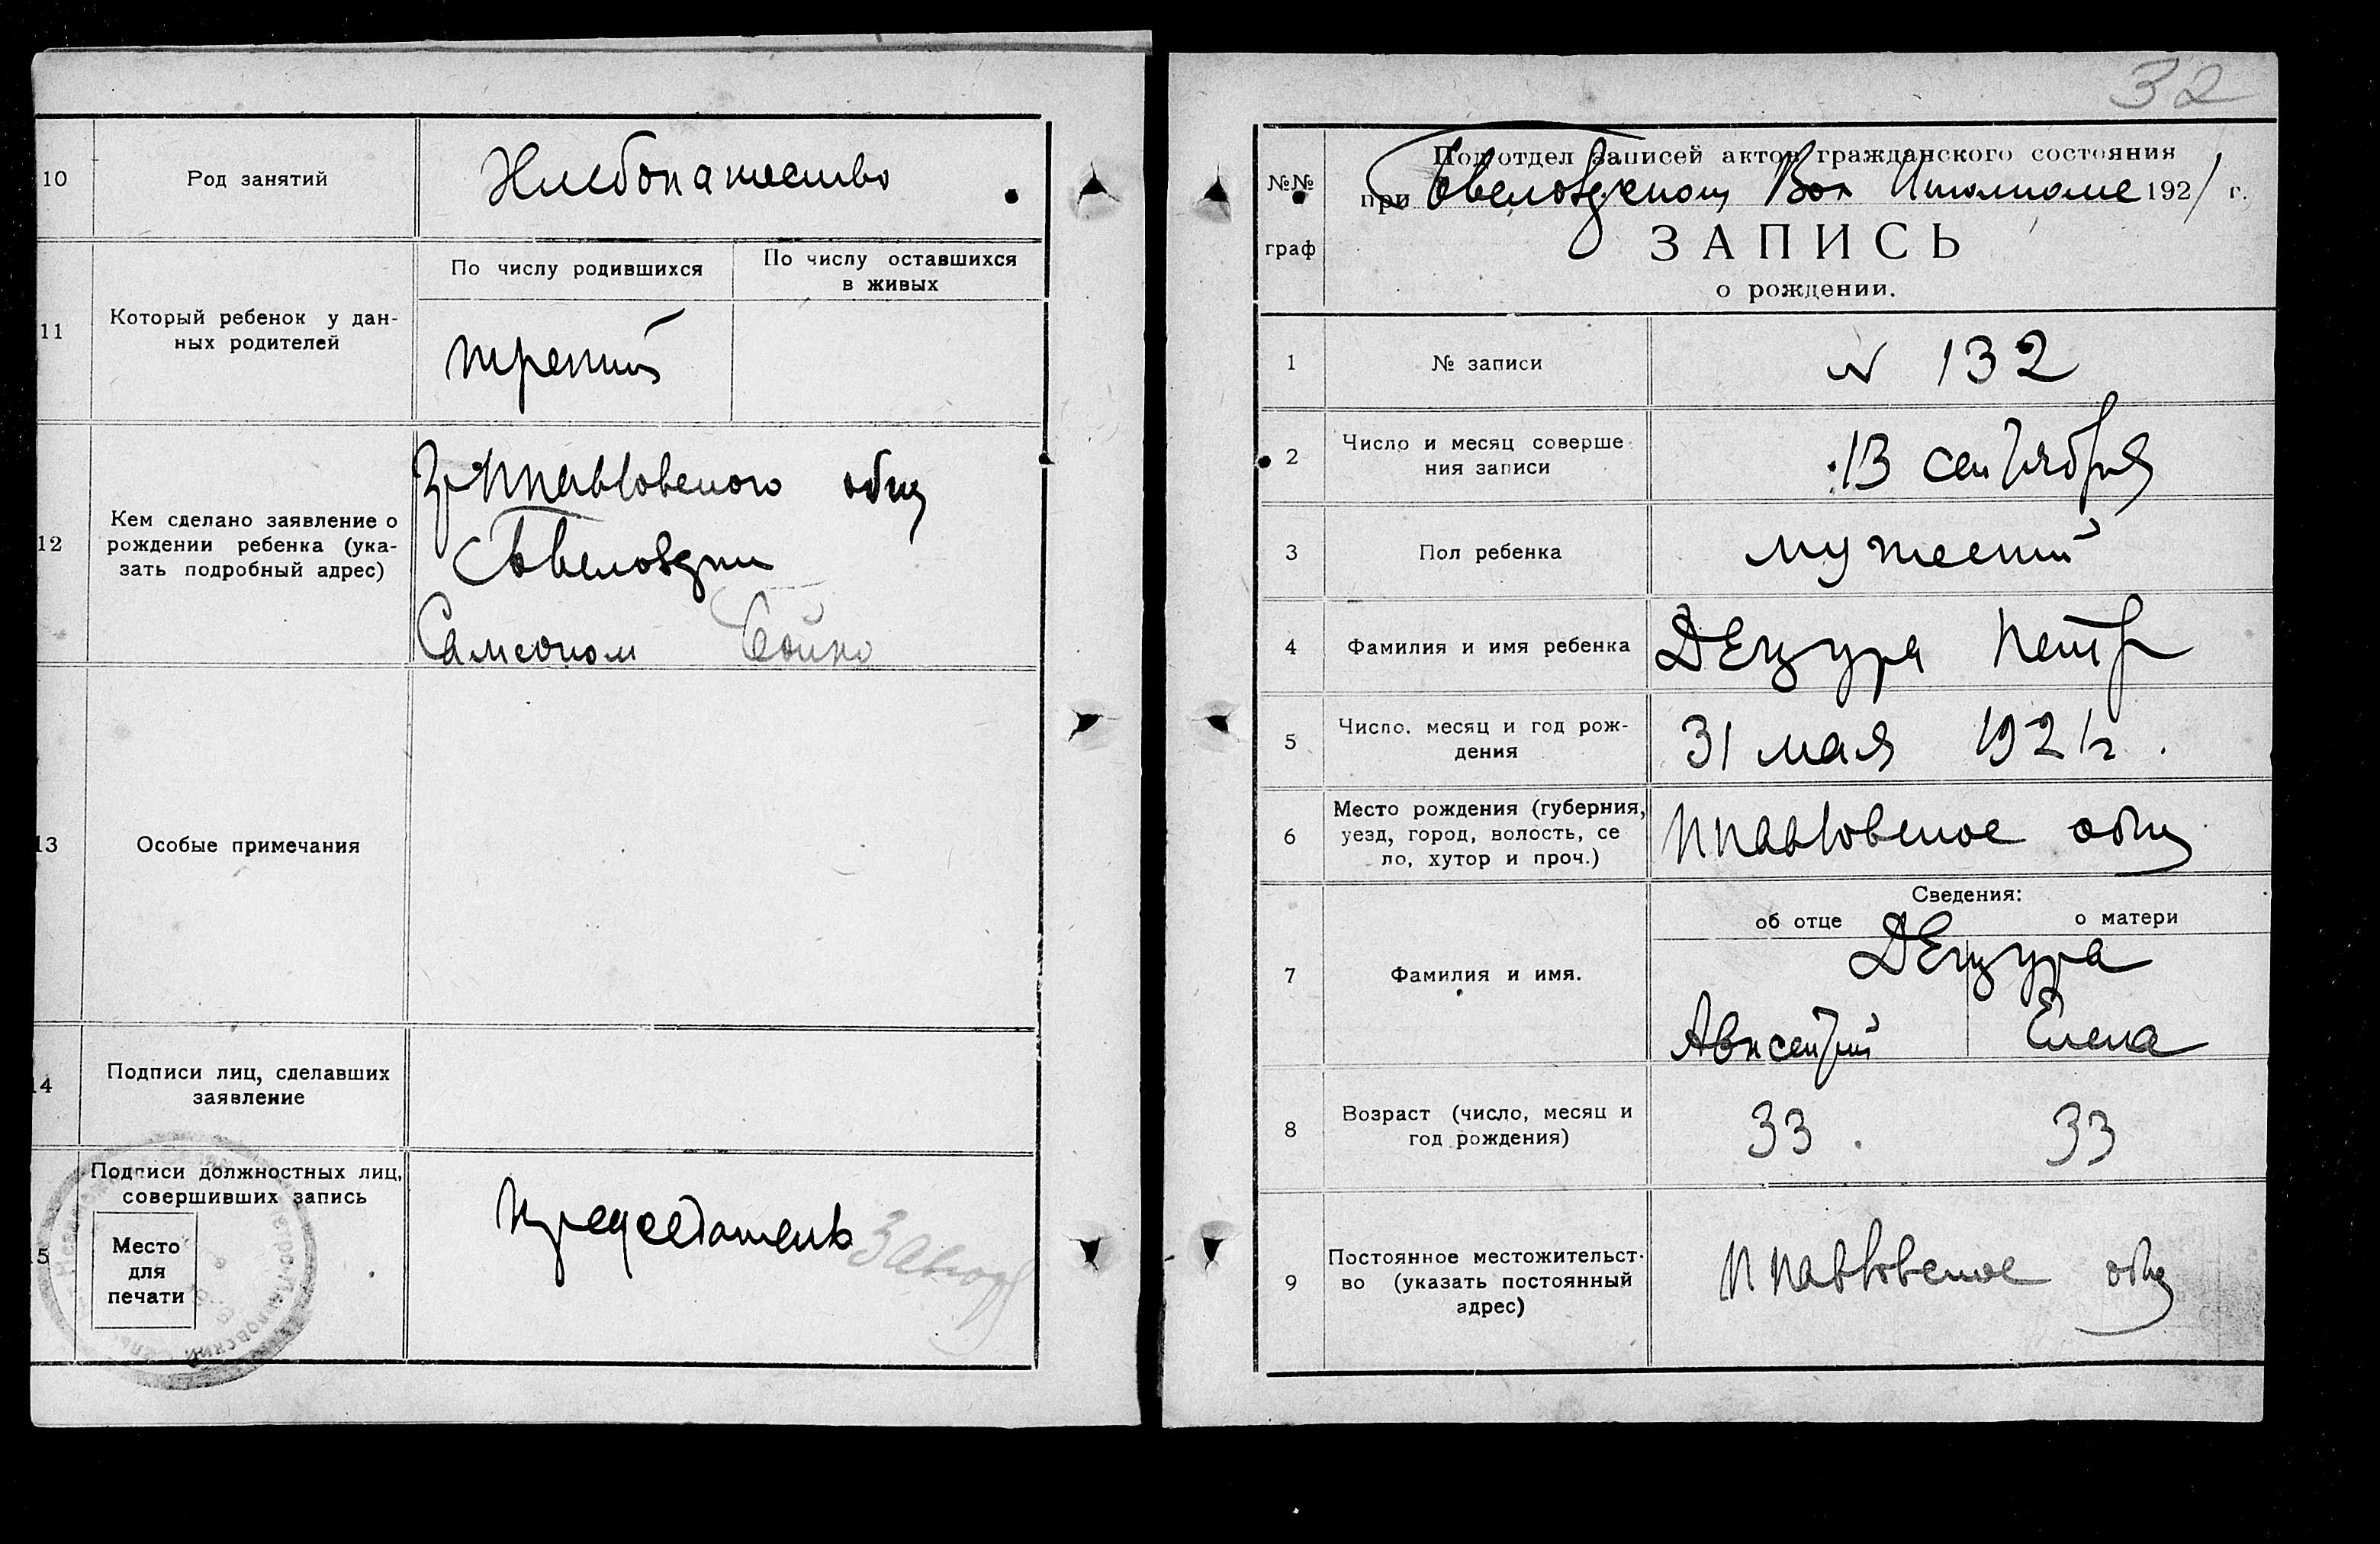 10
Род занятий
Хлебопашество
11
Который ребенок у дан-
ных родителей
По числу родившихся
По числу оставшихся
в живых
третий
12
Кем сделано заявление о
рождении ребенка (ука-
зать подробный адрес)
гр ППавловского общ
Самсоном Бойко
13
Особые примечания
14
Подписи лиц, сделавших
заявление
15
Подписи должностных лиц,
совершивших запись
Место
для
печати
Председатель
32
№№
граф
Подотдел записей актов гражданского состояния
при 1921 г.
ЗАПИСЬ
о рождении.
1
№ записи
N 132
2
Число и месяц соверше
ния записи
13 сентября
3
Пол ребенка
мужеский
4
Фамилия и имя ребенка
Децура Петр
5
Число. месяц и год рож-
дения
31 мая 1921 г.
6
Место рождения (губерния,
уезд, город, волость, се
ло, хутор и проч.)
ППавловское общ
Сведения:
об отце
о матери
7
Фамилия и имя.
Децура
Авксентий
Елена
8
Возраст (число, месяц и
год рождения)
33
33
9
Постоянное местожительст-
во (указать постоянный
адрес)
ППавловское общ